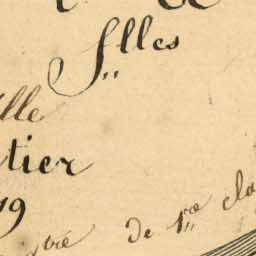 S.lles
lle
tier
19
tre de 1re cla